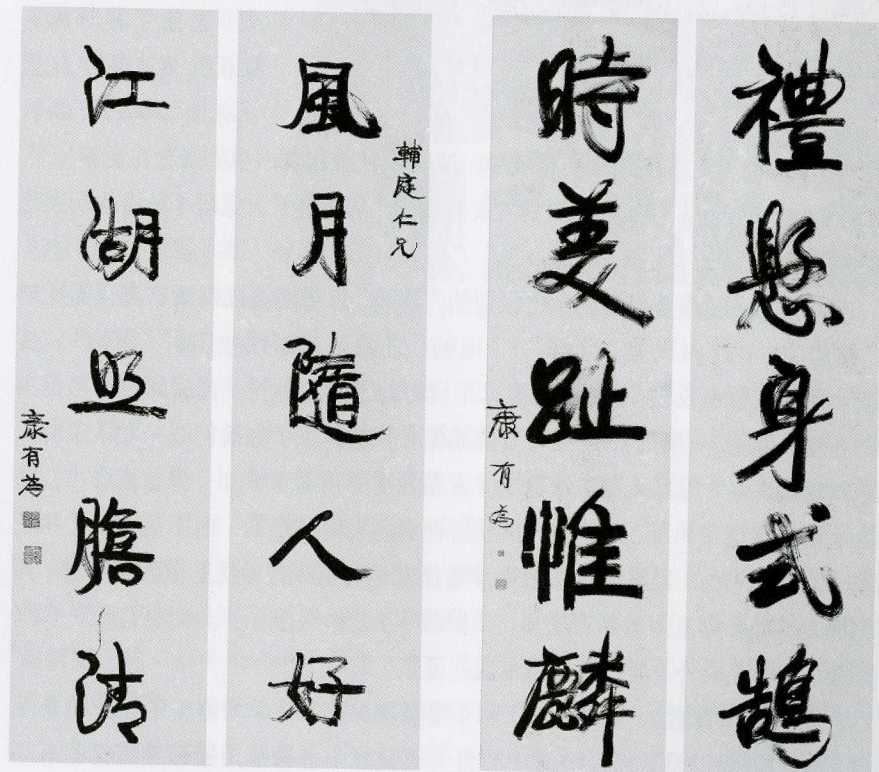 禮懸身式鵠
時美趾惟麟
康有為
輔庭仁兄
風月隨人好
江湖照膽清
康有為